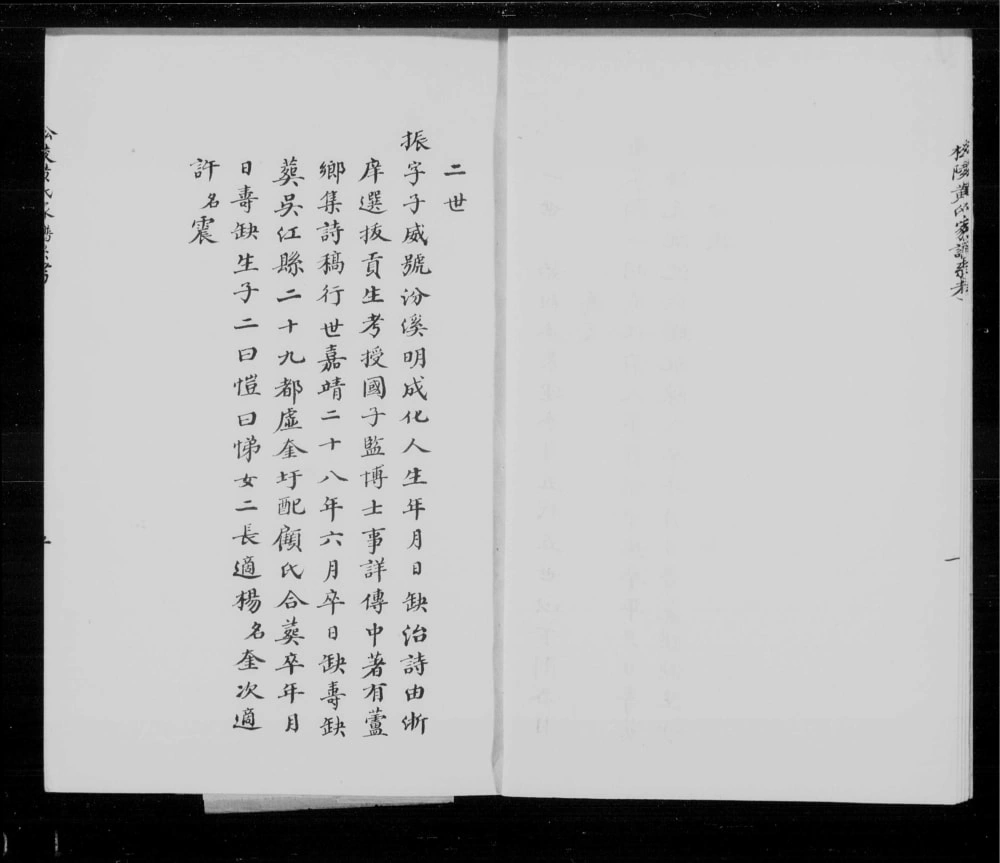 二世
振字子威號汾溪明成化人生年月日缺治詩由浙
庠選拔貢生考授國子監博士事詳傳中著有蘆
鄉集詩稿行世嘉靖二十八年六月卒日缺壽缺
葬吳江縣二十九都虛奎圩配顧氏合葬卒年月
日壽缺生子二曰愷曰悌女二長適楊名奎次適
許名震
黃氏家譜
一